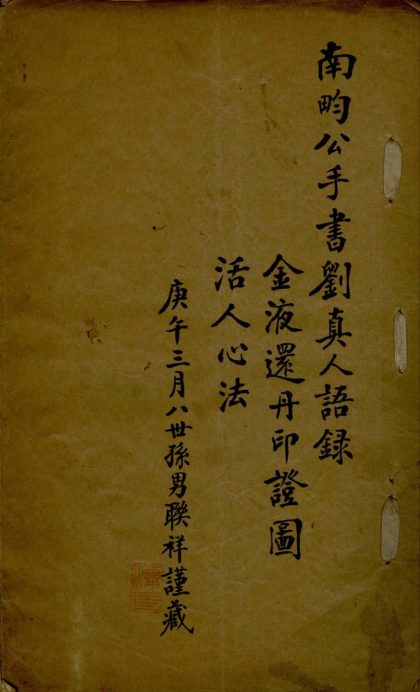 南畇公手書劉真人語録
金液還丹印證圖
活人心法
庚午三月八世孫男聯祥謹藏